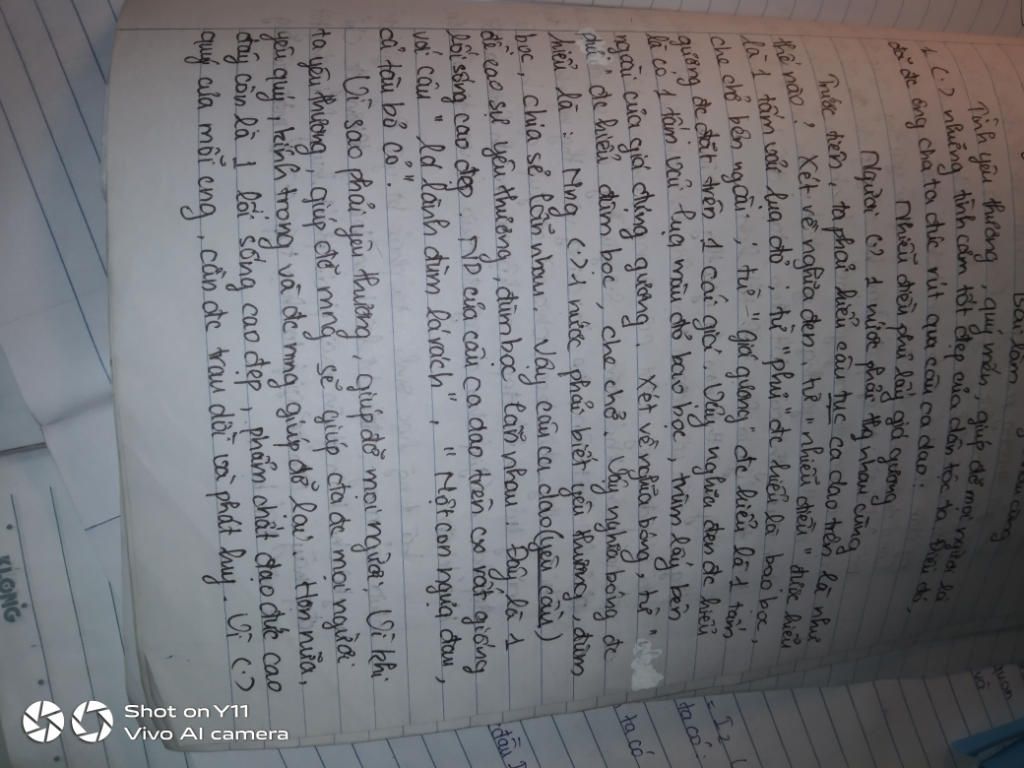 Bài làm
Tình yêu thương, quý mến, giúp đỡ mọi người là
1 (.) những tình cảm tốt đẹp của dân tộc ta. Điều đó,
đã đc ông cha ta đúc rút qua câu ca dao:
Nhiễu điều phủ lấy giá gương
Người (.) 1 nước phải thg nhau cùng
Trước tiên, ta phải hiểu câu tục ca dao trên là như
thế nào? Xét về nghĩa đen từ "nhiễu điều" được hiểu
là 1 tấm vải lụa đỏ; từ "phủ" đc hiểu là bao bọc,
che chở bên ngoài; từ "giá gương" đc hiểu là 1 tấm
gương đc đặt trên 1 cái giá. Vậy nghĩa đen đc hiểu
là có 1 tấm vải lụa màu đỏ bao bọc, trùm lấy bên
ngoài của giá đựng gương. Xét về nghĩa bóng, từ "
phủ" đc hiểu đùm bọc, che chở. Vậy nghĩa bóng đc
hiểu là: Mng (.) 1 nước phải biết yêu thương, đùm
bọc, chia sẻ lẫn nhau. Vậy câu ca dao (yêu cầu)
đề cao sự yêu thương, đùm bọc lẫn nhau. Đây là 1
lối sống cao đẹp. ND của câu ca dao trên có nét giống
với câu "lá lành đùm lá rách", "Một con ngựa đau,
cả tàu bỏ cỏ".
Vì sao phải yêu thương, giúp đỡ mọi người? Vì khi
ta yêu thương, giúp đỡ mng sẽ giúp ta đc mọi người
yêu quý, kính trọng và đc mng giúp đỡ lại. Hơn nữa,
đây còn là 1 lối sống cao đẹp, phẩm chất đạo đức cao
quý của mỗi cng, cần đc trau dồi và phát huy. Vì (.)
KLONG
Shot on Y11
Vivo AI camera